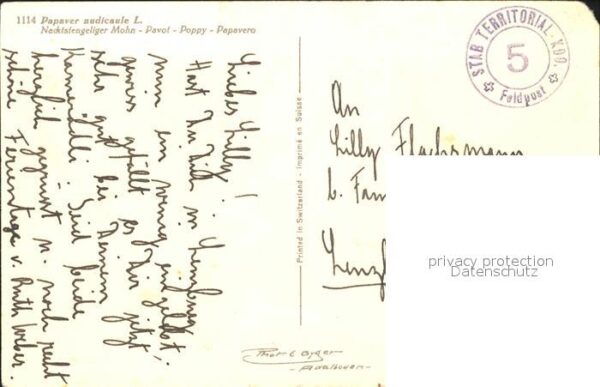 1114 Papaver nudicaule L.
Nacktstengeliger Mohn - Pavot - Poppy - Papavero
STAB TERRITORIAL-KDO.
5
Feldpost
Liebes Lilly!
Hast Du Dich in Lenzburg
nun ein wenig eingelebt,
gewiss gefällt es Dir jetzt
sehr gut bei Deinem
Seid beide
herzlich gegrüsst u. noch recht
schöne Ferientage v. Ruth Weber.
Printed in Switzerland - Imprimé en Suisse
An
Lilly Flachsmann
b. Fam
Lenzb
privacy protection
Datenschutz
Phot E Gyger
- Adelboden -